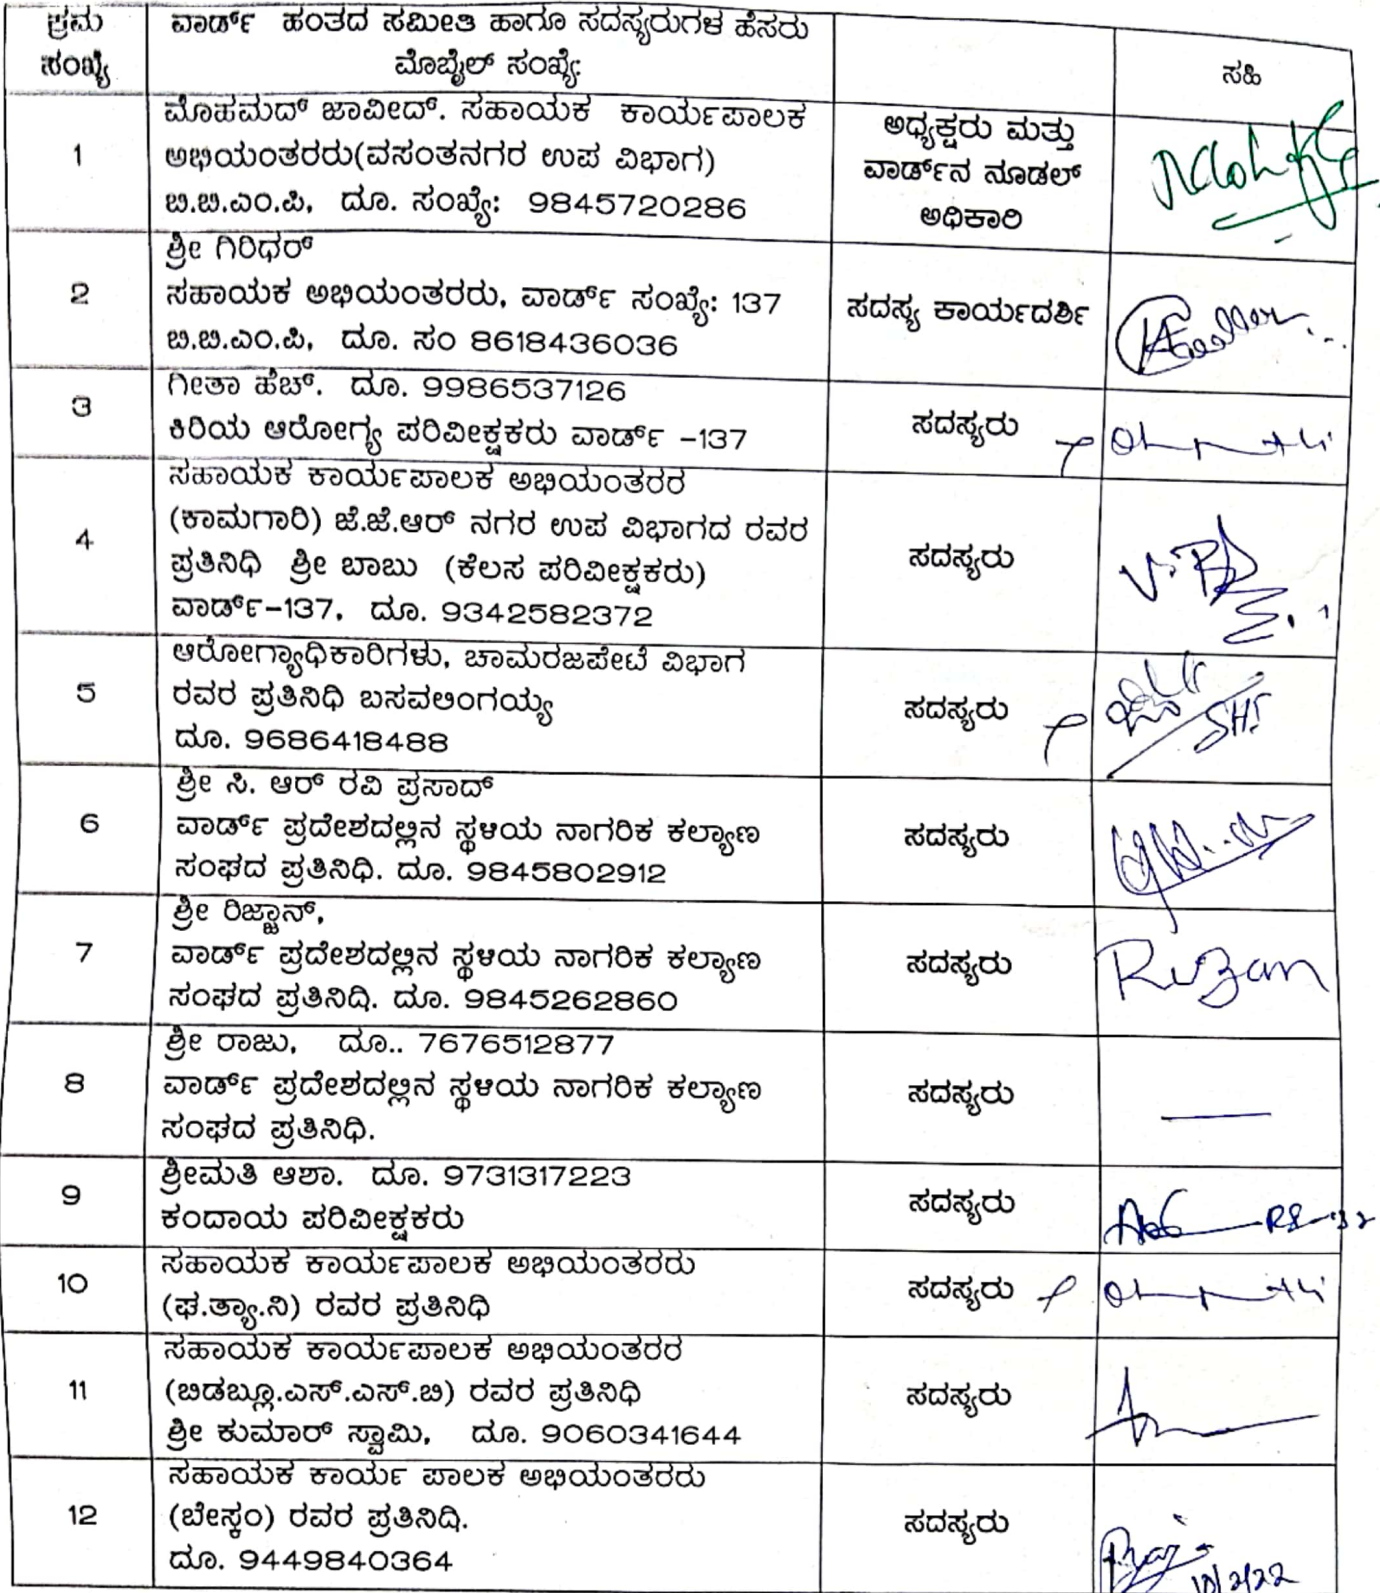 ಕ್ರಮ ಸಂಖ್ಯೆ
ವಾರ್ಡ್ ಹಂತದ ಸಮೀತಿ ಹಾಗೂ ಸದಸ್ಯರುಗಳ ಹೆಸರು
ಮೊಬೈಲ್ ಸಂಖ್ಯೆ
ಸಹಿ
1
ಮೊಹಮದ್ ಜಾವೀದ್. ಸಹಾಯಕ ಕಾರ್ಯಪಾಲಕ
ಅಭಿಯಂತರರು(ವಸಂತನಗರ ಉಪ ವಿಭಾಗ)
ಬಿ.ಬಿ.ಎಂ.ಪಿ, ದೂ. ಸಂಖ್ಯೆ: 9845720286
ಅಧ್ಯಕ್ಷರು ಮತ್ತು
ವಾರ್ಡ್‌ನ ನೂಡಲ್
ಅಧಿಕಾರಿ
2
ಶ್ರೀ ಗಿರಿಧರ್
ಸಹಾಯಕ ಅಭಿಯಂತರರು, ವಾರ್ಡ್ ಸಂಖ್ಯೆ: 137
ಬಿ.ಬಿ.ಎಂ.ಪಿ, ದೂ. ಸಂ 8618436036
ಸದಸ್ಯ ಕಾರ್ಯದರ್ಶಿ
3
ಗೀತಾ ಹೆಚ್. ದೂ. 9986537126
ಕಿರಿಯ ಆರೋಗ್ಯ ಪರಿವೀಕ್ಷಕರು ವಾರ್ಡ್ -137
ಸದಸ್ಯರು
4
ಸಹಾಯಕ ಕಾರ್ಯಪಾಲಕ ಅಭಿಯಂತರರ
(ಕಾಮಗಾರಿ) ಜೆ.ಜೆ.ಆರ್ ನಗರ ಉಪ ವಿಭಾಗದ ರವರ
ಪ್ರತಿನಿಧಿ ಶ್ರೀ ಬಾಬು (ಕೆಲಸ ಪರಿವೀಕ್ಷಕರು)
ವಾರ್ಡ್-137, ದೂ. 9342582372
ಸದಸ್ಯರು
5
ಆರೋಗ್ಯಾಧಿಕಾರಿಗಳು, ಚಾಮರಜಪೇಟೆ ವಿಭಾಗ
ರವರ ಪ್ರತಿನಿಧಿ ಬಸವಲಿಂಗಯ್ಯ
ದೂ. 9686418488
ಸದಸ್ಯರು
6
ಶ್ರೀ ಸಿ. ಆರ್ ರವಿ ಪ್ರಸಾದ್
ವಾರ್ಡ್ ಪ್ರದೇಶದಲ್ಲಿನ ಸ್ಥಳಿಯ ನಾಗರಿಕ ಕಲ್ಯಾಣ
ಸಂಘದ ಪ್ರತಿನಿಧಿ. ದೂ. 9845802912
ಸದಸ್ಯರು
7
ಶ್ರೀ ರಿಜ್ಞಾನ್,
ವಾರ್ಡ್ ಪ್ರದೇಶದಲ್ಲಿನ ಸ್ಥಳಿಯ ನಾಗರಿಕ ಕಲ್ಯಾಣ
ಸಂಘದ ಪ್ರತಿನಿದಿ. ದೂ. 9845262860
ಸದಸ್ಯರು
Rizan
8
ಶ್ರೀ ರಾಜು, ದೂ.. 7676512877
ವಾರ್ಡ್ ಪ್ರದೇಶದಲ್ಲಿನ ಸ್ಥಳಿಯ ನಾಗರಿಕ ಕಲ್ಯಾಣ
ಸಂಘದ ಪ್ರತಿನಿಧಿ.
ಸದಸ್ಯರು
9
ಶ್ರೀಮತಿ ಆಶಾ. ದೂ. 9731317223
ಕಂದಾಯ ಪರಿವೀಕ್ಷಕರು
ಸದಸ್ಯರು
10
ಸಹಾಯಕ ಕಾರ್ಯಪಾಲಕ ಅಭಿಯಂತರರು
(ಘ.ತ್ಯಾ.ನಿ) ರವರ ಪ್ರತಿನಿಧಿ
ಸದಸ್ಯರು
11
ಸಹಾಯಕ ಕಾರ್ಯಪಾಲಕ ಅಭಿಯಂತರರ
(ಬಿಡಬ್ಲೂ.ಎಸ್.ಎಸ್.ಬಿ) ರವರ ಪ್ರತಿನಿಧಿ
ಶ್ರೀ ಕುಮಾರ್ ಸ್ವಾಮಿ, ದೂ. 9060341644
ಸದಸ್ಯರು
12
ಸಹಾಯಕ ಕಾರ್ಯ ಪಾಲಕ ಅಭಿಯಂತರರು
(ಬೇಸ್ಕಂ) ರವರ ಪ್ರತಿನಿದಿ.
ದೂ. 9449840364
ಸದಸ್ಯರು